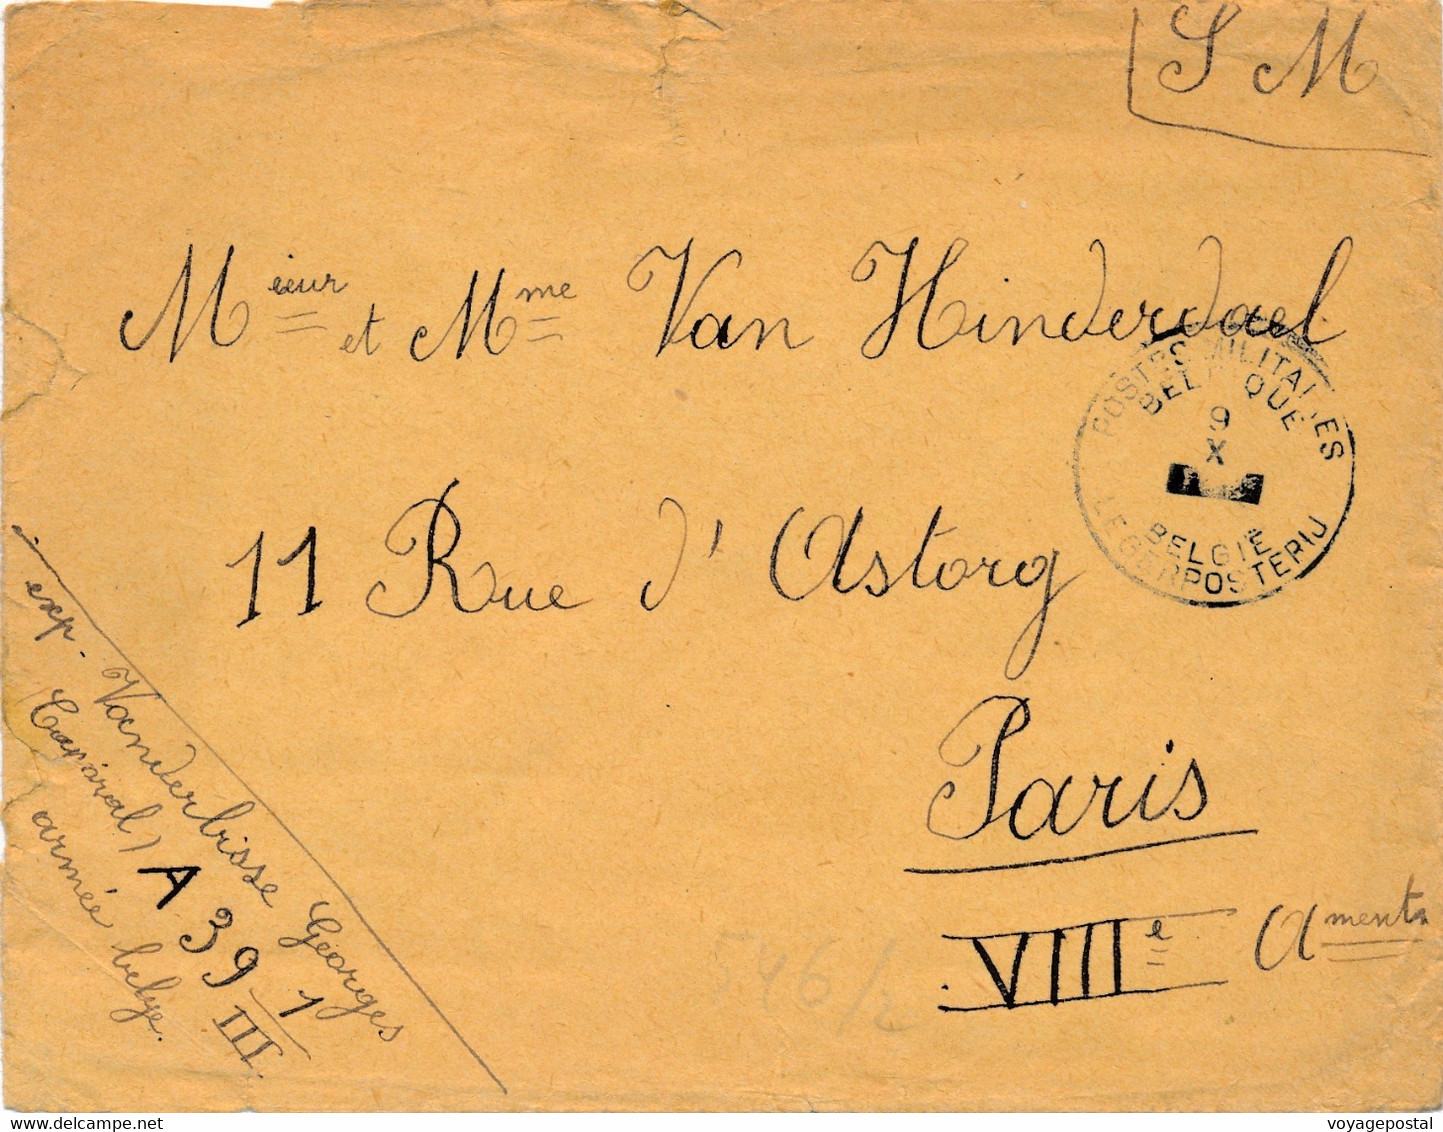 S M
Mieur et Mme Van Hinderdael
11 Rue d'Astorg
Paris
VIIIe Aments
POSTES MILITAIRES
BELGIQUE
9
X
BELGIË
LEGERPOSTERIJ
exp. Vanderbisse Georges
(Caporal) A 39 1
III.
armée belge.
546/2
voyagepostal